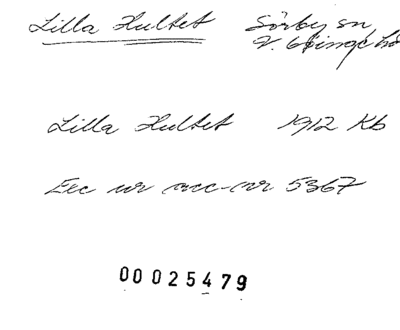 Lilla Hultet Sörby sn
V. Göinge hd
Lilla Hultet 1912 Kb
Exc ur acc-nr 5367
00025479